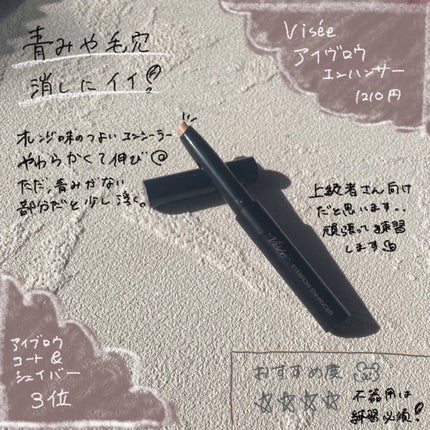 青みや毛穴
消しにイイ!
Visée
アイブロウ
エンハンサー
1210円
オレンジ味のつよいコンシーラー
やわらかくて伸び◎
ただ、青みがない
部分だと少し浮く。
上級者さん向け
だと思います..
頑張って練習
します
Visée
EYEBROW ENHANCER
アイブロウ
コート&
シェイバー
3位
おすすめ度
☆☆☆☆
不器用は
練習必須!